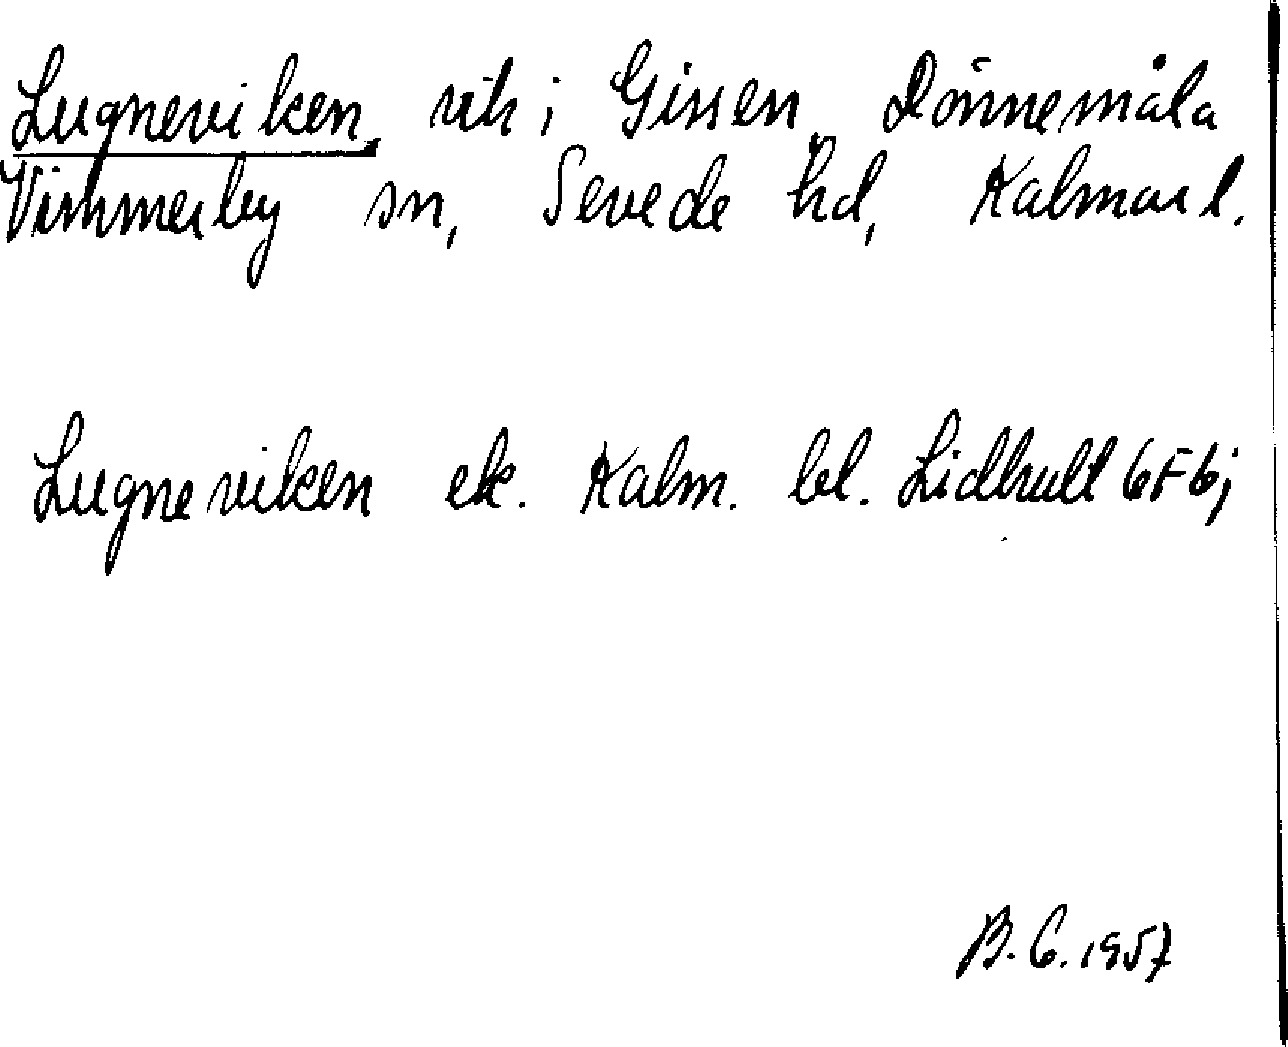 Lugneviken, vik i Gissen, Dönnemåla
Vimmerby sn, Sevede hd, Kalmar l.
Lugneviken ek. Kalm. bl. Lidhult 6F6j
B. G. 1957